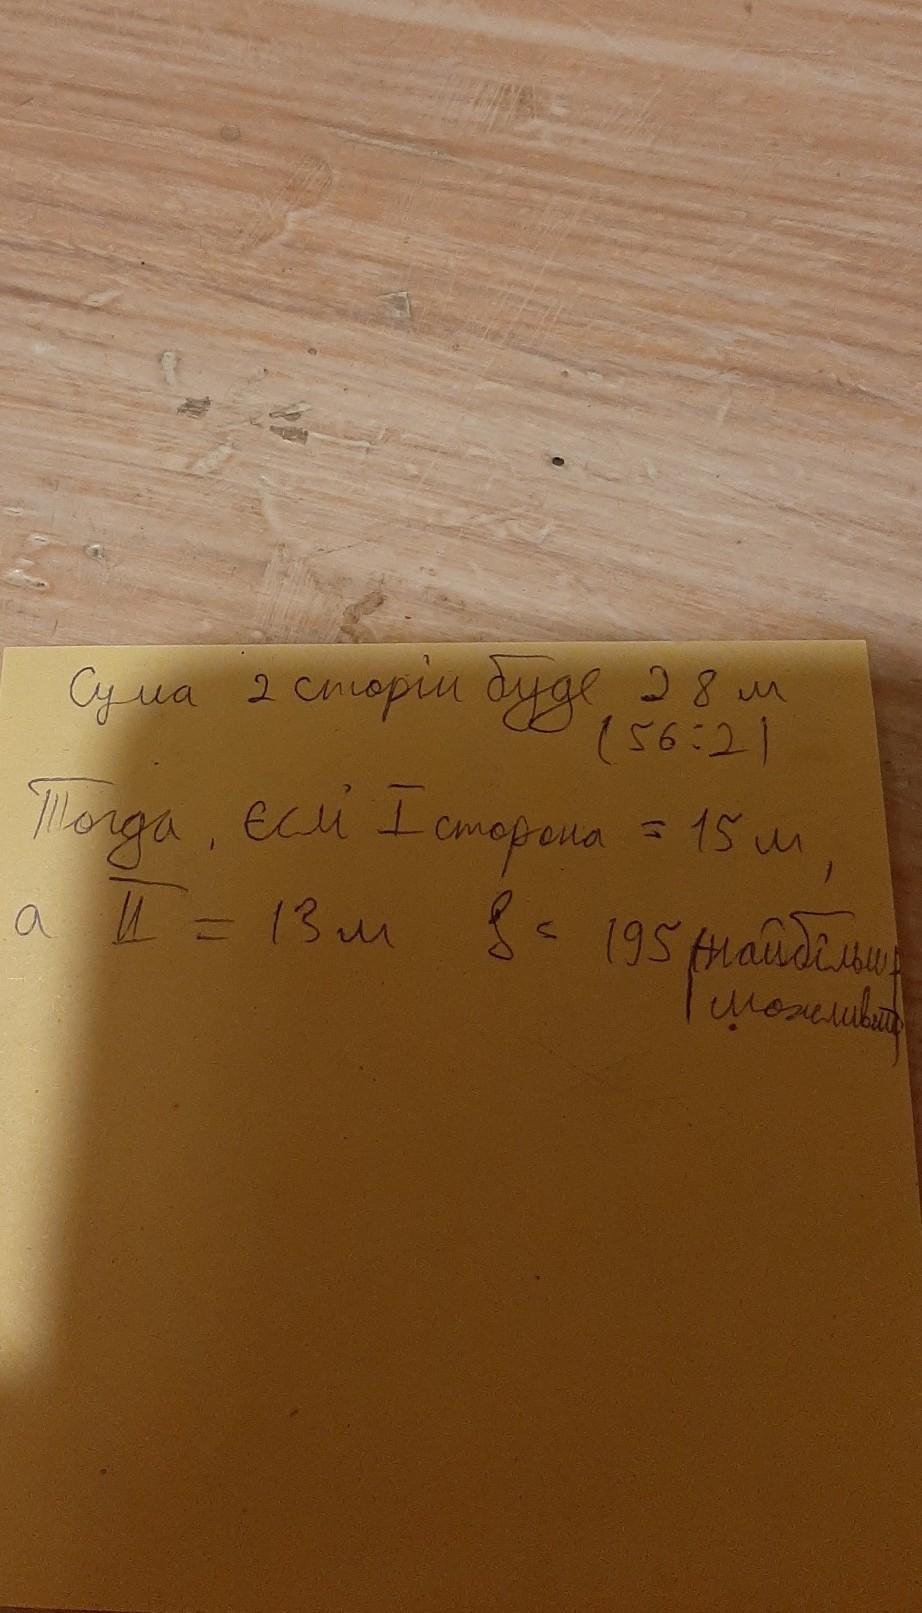 Сума 2 сторін буде 28 м
(56:2)
Тогда, єслі I сторона = 15 м,
а II = 13 м S = 195 (найбільш
можливий)